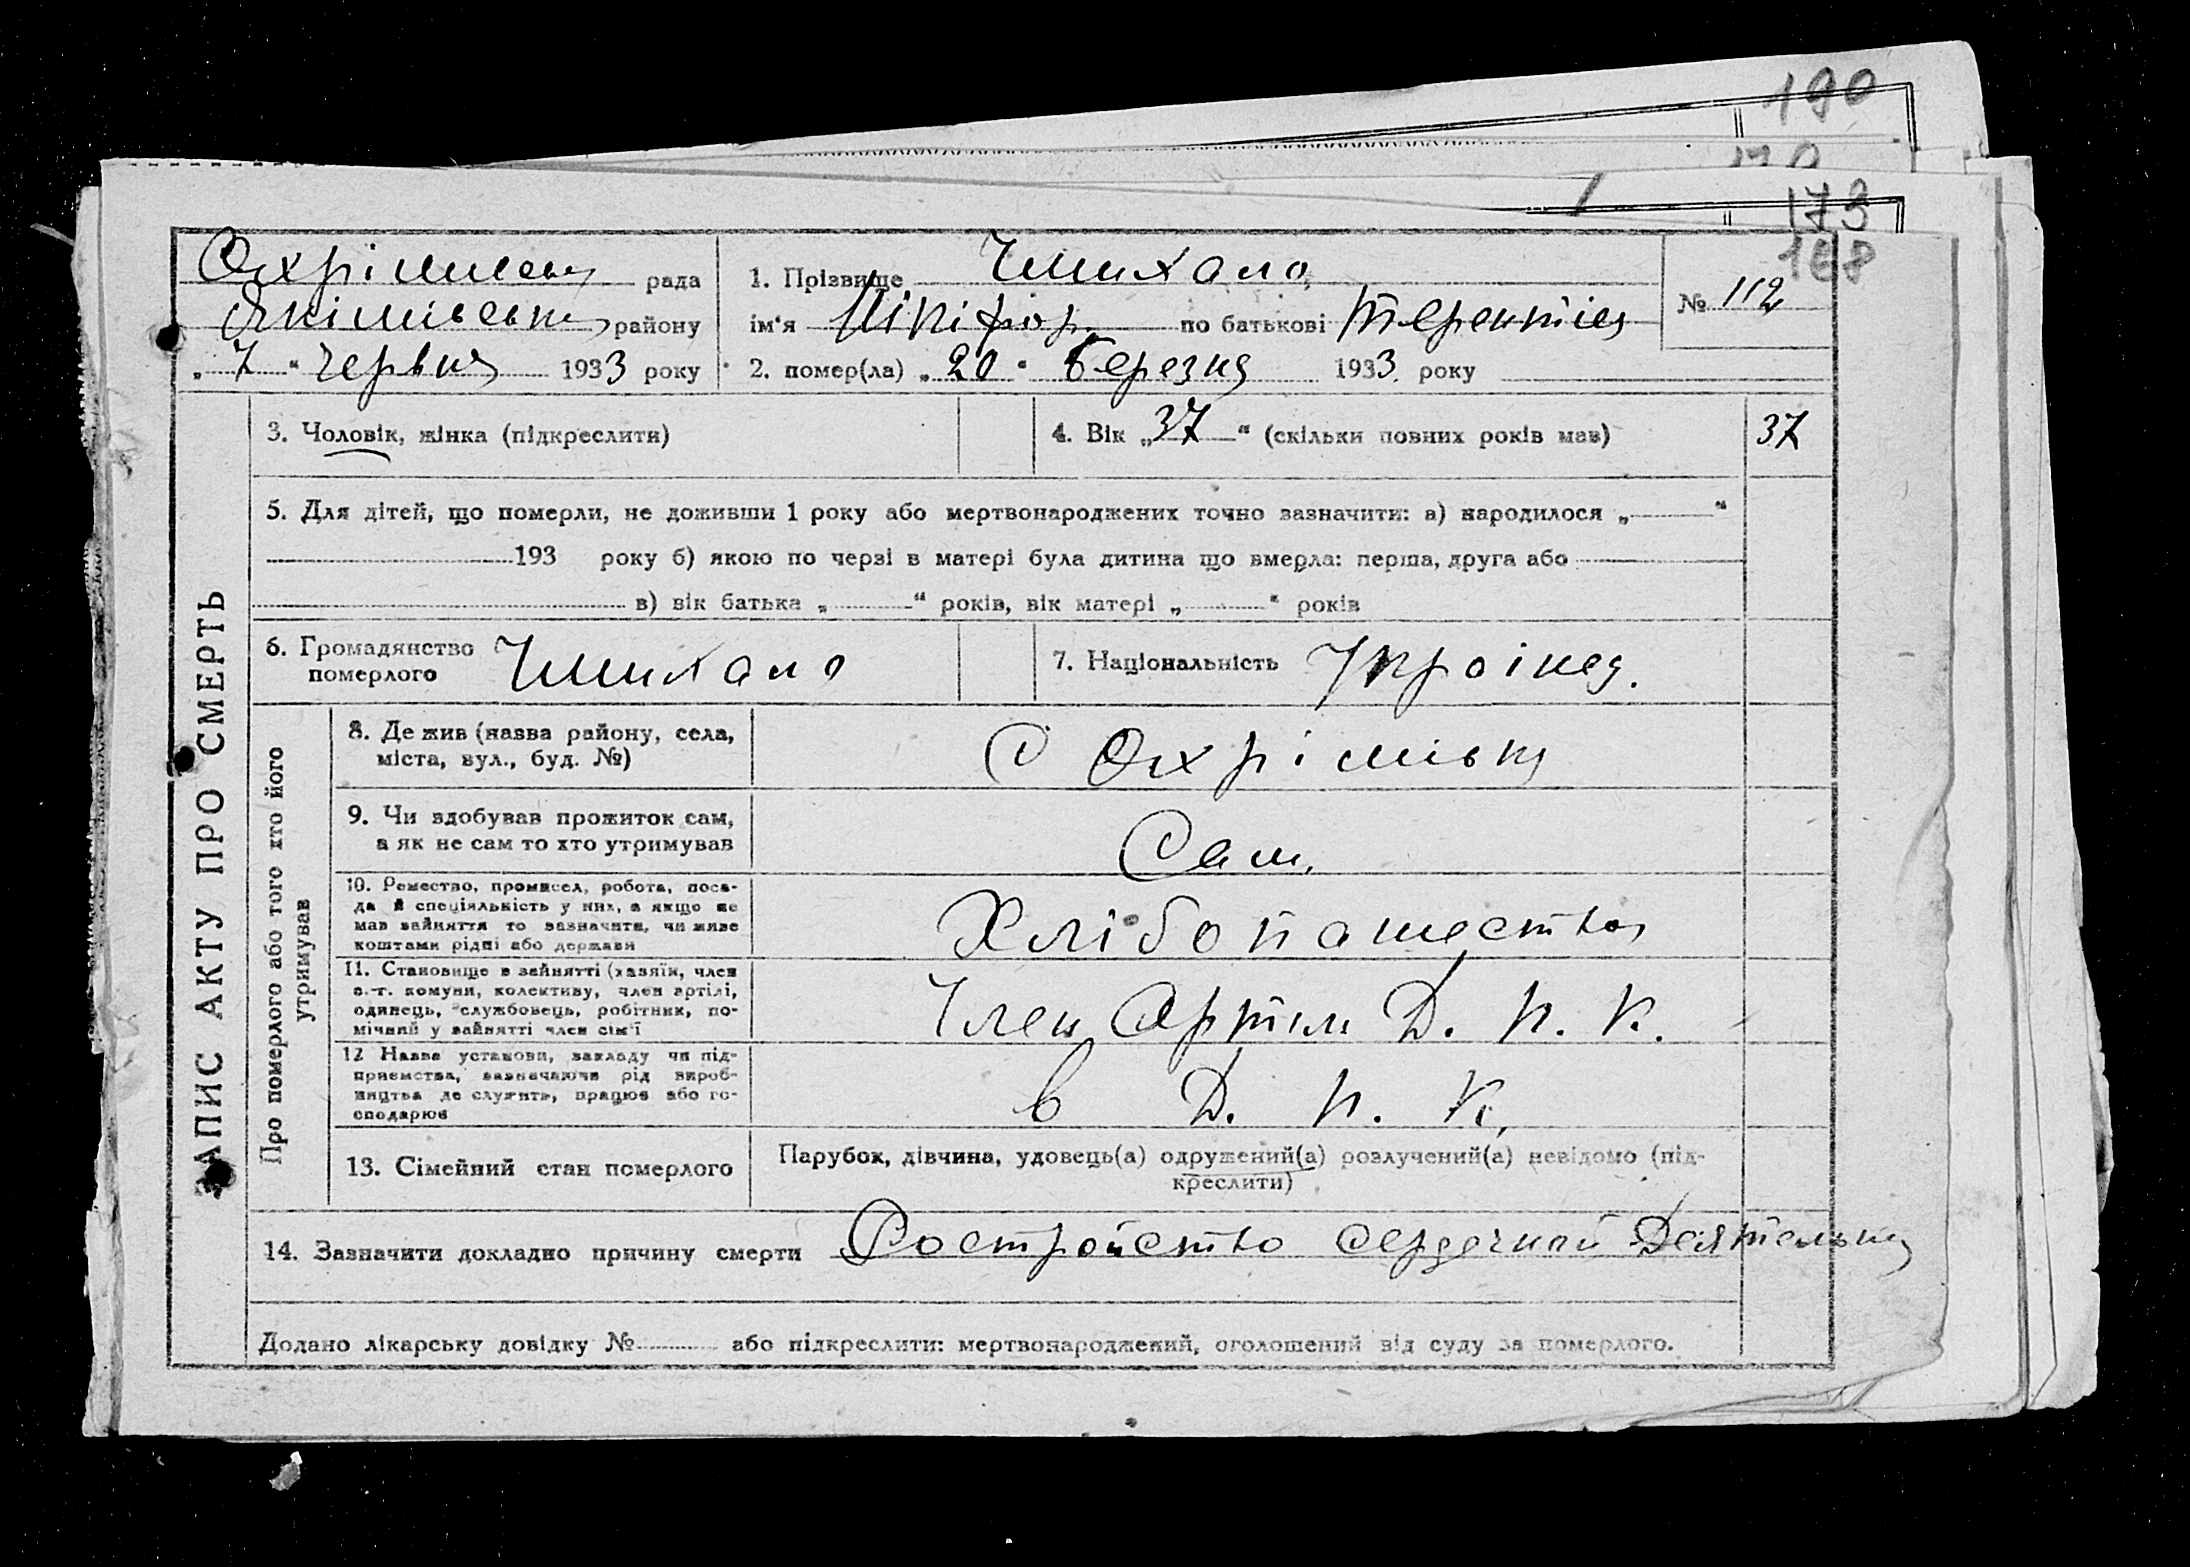 190
173
168
Охрімівськ рада
Якімівськ району
„ 7 “ червня 1933 року
1. Прізвище Чмихало
ім‘я Нікіфор по батькові Терентієв
№ 112
2. помер(ла) „ 20 “ березня 1933 року
3. Чоловік, жінка (підкреслити)
4. Вік „ 37 “ (скільки повних років мав)
37
5. Для дітей, що померли, не доживши 1 року або мертвонароджених точно зазначити: а) народилося „ “
193 року б) якою по черзі в матері була дитина що вмерла: перша, друга або
в) вік батька „ “ років, вік матері „ “ років
6. Громадянство
померлого Чмихало
7. Національність Українец.
ЗАПИС АКТУ ПРО СМЕРТЬ
Про померлого або того хто його
утримував
8. Де жив (назва району, села,
міста, вул., буд. №)
С Охрімівка
9. Чи здобував прожиток сам,
а як не сам то хто утримував
Сам,
10. Ремество, промисел, робота, поса-
да й спеціяльність у них, а якщо не
мав зайняття то зазначити, чи живе
коштами рідні або держави
Хлібопашество
11. Становище в зайнятті (хазяїн, член
с.-г. комуни, колективу, член артілі,
одинець, службовець, робітник, по-
мічний у зайнятті член сім‘ї
Член Артили Д. Н. К.
12 Назва установи, закладу чи під-
приємства, зазначаючи рід вироб-
ництва де служить, працює або го-
сподарює
в Д. Н. К,
13. Сімейний стан померлого
Парубок, дівчина, удовець(а) одружений(а) розлучений(а) невідомо (під-
креслити)
14. Зазначити докладно причину смерти Ростройство сердечной Деятельн
Додано лікарську довідку № або підкреслити: мертвонароджений, оголошений від суду за померлого.